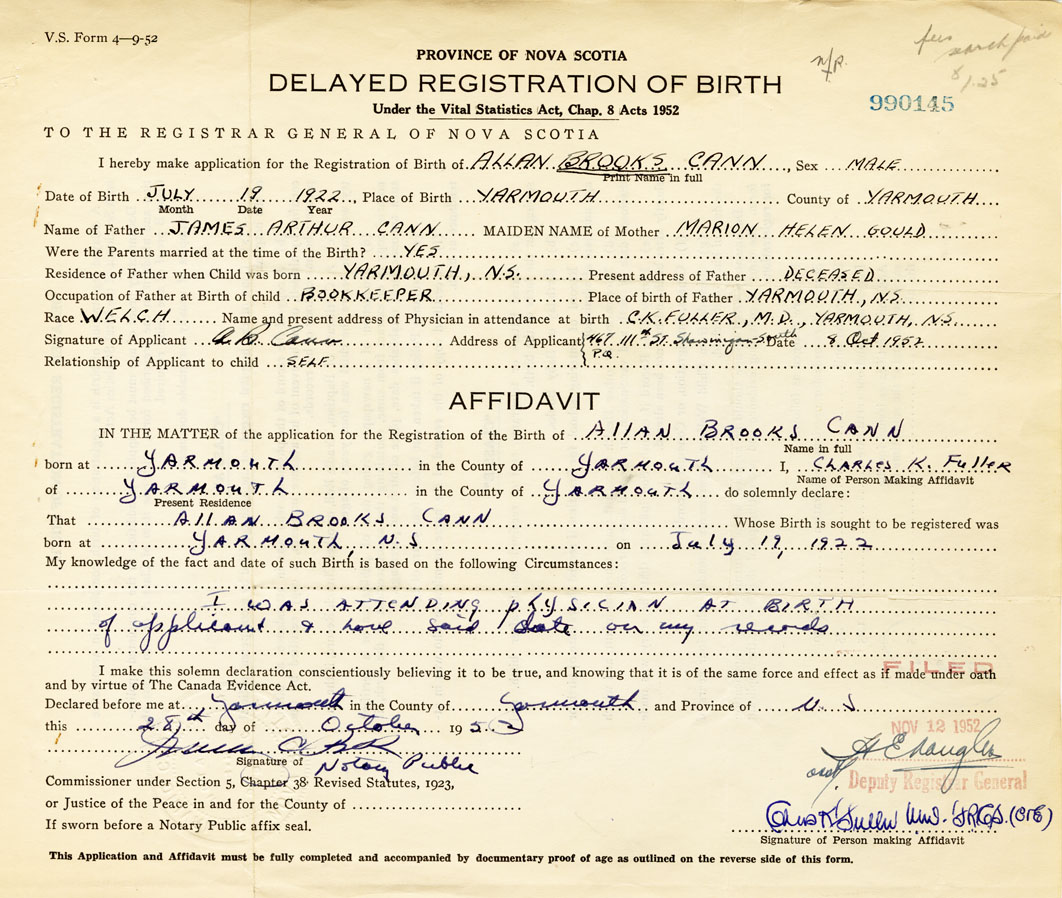 V.S. Form 4—9-52
fee search paid
$1.25
n/R.
PROVINCE OF NOVA SCOTIA
DELAYED REGISTRATION OF BIRTH
990145
Under the Vital Statistics Act, Chap. 8 Acts 1952
TO THE REGISTRAR GENERAL OF NOVA SCOTIA
I hereby make application for the Registration of Birth of ALLAN BROOKS CANN, Sex MALE
Print Name in full
Date of Birth JULY 19 1922, Place of Birth YARMOUTH County of YARMOUTH
Month Date Year
Name of Father JAMES ARTHUR CANN MAIDEN NAME of Mother MARION HELEN GOULD
Were the Parents married at the time of the Birth? YES
Residence of Father when Child was born YARMOUTH, N.S. Present address of Father DECEASED
Occupation of Father at Birth of child BOOKKEEPER Place of birth of Father YARMOUTH, N.S.
Race WELCH Name and present address of Physician in attendance at birth C.K. FULLER, M.D., YARMOUTH, N.S.
Signature of Applicant A B Cann Address of Applicant 467 111th St. Shawinigan South Date 8 Oct 1952
P.Q.
Relationship of Applicant to child SELF
AFFIDAVIT
IN THE MATTER of the application for the Registration of the Birth of Allan Brooks Cann
Name in full
born at Yarmouth in the County of Yarmouth I, Charles K. Fuller
Name of Person Making Affidavit
of Yarmouth in the County of Yarmouth do solemnly declare:
Present Residence
That Allan Brooks Cann Whose Birth is sought to be registered was
born at Yarmouth, N.S on July 19, 1922
My knowledge of the fact and date of such Birth is based on the following Circumstances:
I was attending physician at birth
of applicant & have said date on my records
I make this solemn declaration conscientiously believing it to be true, and knowing that it is of the same force and effect as if made under oath
FILED
and by virtue of The Canada Evidence Act.
Declared before me at Yarmouth in the County of Yarmouth and Province of N.S
this 28th day of October 1952
NOV 12 1952
Signature of
Notary Public
Deputy Registrar General
Commissioner under Section 5, Chapter 38 Revised Statutes, 1923,
or Justice of the Peace in and for the County of
Chas K Fuller M.D. F.R.C.S. (
If sworn before a Notary Public affix seal.
Signature of Person making Affidavit
This Application and Affidavit must be fully completed and accompanied by documentary proof of age as outlined on the reverse side of this form.